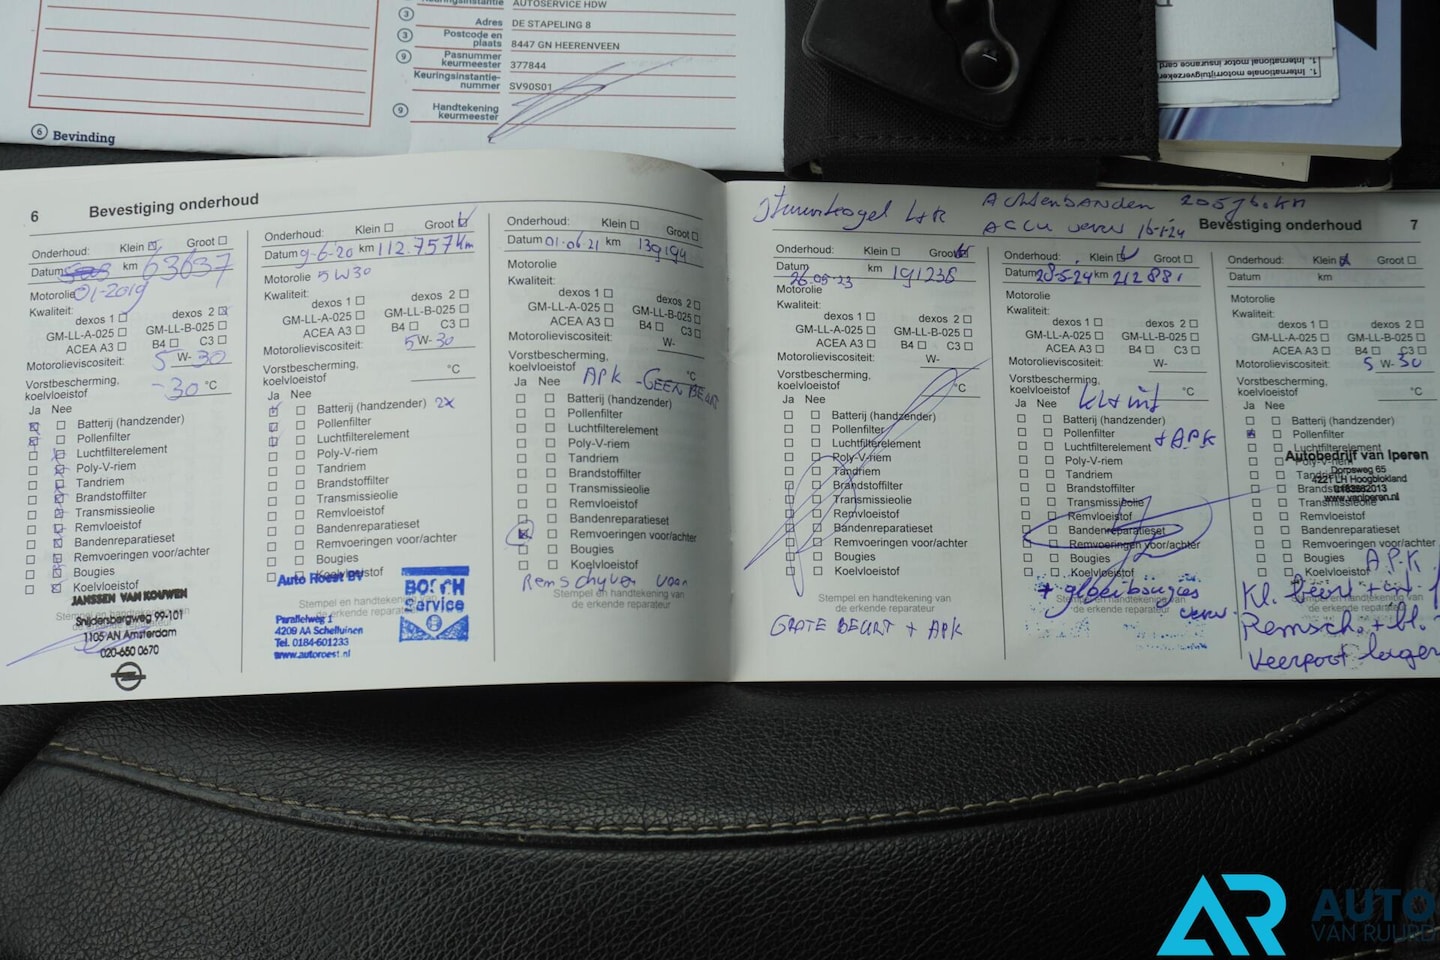 Keuringsinstantie AUTOSERVICE HDW
3 Adres DE STAPELING 8
3 Postcode en plaats 8447 GN HEERENVEEN
9 Pasnummer keurmeester 377844
Keuringsinstantie-nummer SV90S01
9 Handtekening keurmeester
6 Bevinding
1. Internationale motorrijtuigverzeker
1. International motor insurance card
6 Bevestiging onderhoud
Onderhoud: Klein Groot
Datum 01-2019 km 63637
Motorolie
Kwaliteit:
dexos 1 dexos 2
GM-LL-A-025 GM-LL-B-025
ACEA A3 B4 C3
Motorolieviscositeit: 5 W- 30
Vorstbescherming, koelvloeistof -30 °C
Ja Nee
Batterij (handzender)
Pollenfilter
Luchtfilterelement
Poly-V-riem
Tandriem
Brandstoffilter
Transmissieolie
Remvloeistof
Bandenreparatieset
Remvoeringen voor/achter
Bougies
Koelvloeistof
Stempel en handtekening van de erkende reparateur
JANSSEN VAN KOUWEN
Snijdersbergweg 99-101
1105 AN Amsterdam
020-650 0670
Onderhoud: Klein Groot
Datum 9-6-20 km 112.757 km
Motorolie 5W30
Kwaliteit:
dexos 1 dexos 2
GM-LL-A-025 GM-LL-B-025
ACEA A3 B4 C3
Motorolieviscositeit: 5 W- 30
Vorstbescherming, koelvloeistof °C
Ja Nee
Batterij (handzender) 2x
Pollenfilter
Luchtfilterelement
Poly-V-riem
Tandriem
Brandstoffilter
Transmissieolie
Remvloeistof
Bandenreparatieset
Remvoeringen voor/achter
Bougies
Koelvloeistof
Stempel en handtekening van de erkende reparateur
Auto Roest BV
Parallelweg 1
4209 AA Schelluinen
Tel. 0184-601233
www.autoroest.nl
BOSCH
Service
Onderhoud: Klein Groot
Datum 01-06-21 km 139194
Motorolie
Kwaliteit:
dexos 1 dexos 2
GM-LL-A-025 GM-LL-B-025
ACEA A3 B4 C3
Motorolieviscositeit: W-
Vorstbescherming, koelvloeistof °C
Ja Nee APK - GEEN BEURT
Batterij (handzender)
Pollenfilter
Luchtfilterelement
Poly-V-riem
Tandriem
Brandstoffilter
Transmissieolie
Remvloeistof
Bandenreparatieset
Remvoeringen voor/achter
Bougies
Koelvloeistof
Remschyven voor
Stempel en handtekening van de erkende reparateur
Stuurkogel L+R
Achterbanden 205760 km
Accu 16-1-24
Bevestiging onderhoud 7
Onderhoud: Klein Groot
Datum 26-05-23 km 191236
Motorolie
Kwaliteit:
dexos 1 dexos 2
GM-LL-A-025 GM-LL-B-025
ACEA A3 B4 C3
Motorolieviscositeit: W-
Vorstbescherming, koelvloeistof °C
Ja Nee
Batterij (handzender)
Pollenfilter
Luchtfilterelement
Poly-V-riem
Tandriem
Brandstoffilter
Transmissieolie
Remvloeistof
Bandenreparatieset
Remvoeringen voor/achter
Bougies
Koelvloeistof
Stempel en handtekening van de erkende reparateur
GROTE BEURT + APK
Onderhoud: Klein Groot
Datum 28-5-24 km 212881
Motorolie
Kwaliteit:
dexos 1 dexos 2
GM-LL-A-025 GM-LL-B-025
ACEA A3 B4 C3
Motorolieviscositeit: W-
Vorstbescherming, koelvloeistof °C
Ja Nee
Batterij (handzender)
Pollenfilter + APK
Luchtfilterelement
Poly-V-riem
Tandriem
Brandstoffilter
Transmissieolie
Remvloeistof
Bandenreparatieset
Remvoeringen voor/achter
Bougies
Koelvloeistof
+ gloeibougies
Stempel en handtekening van de erkende reparateur
Onderhoud: Klein Groot
Datum km
Motorolie
Kwaliteit:
dexos 1 dexos 2
GM-LL-A-025 GM-LL-B-025
ACEA A3 B4 C3
Motorolieviscositeit: 5 W- 30
Vorstbescherming, koelvloeistof °C
Ja Nee
Batterij (handzender)
Pollenfilter
Luchtfilterelement
Autobedrijf van Iperen
Dorpsweg 65
4221 LH Hoogblokland
www.vaniperen.nl
Transmissieolie
Remvloeistof
Bandenreparatieset
Remvoeringen voor/achter
Bougies APK
Koelvloeistof
Kl. beurt
Remsch. + bl.
Veerpoot lager
AR AUTO
VAN RUURD